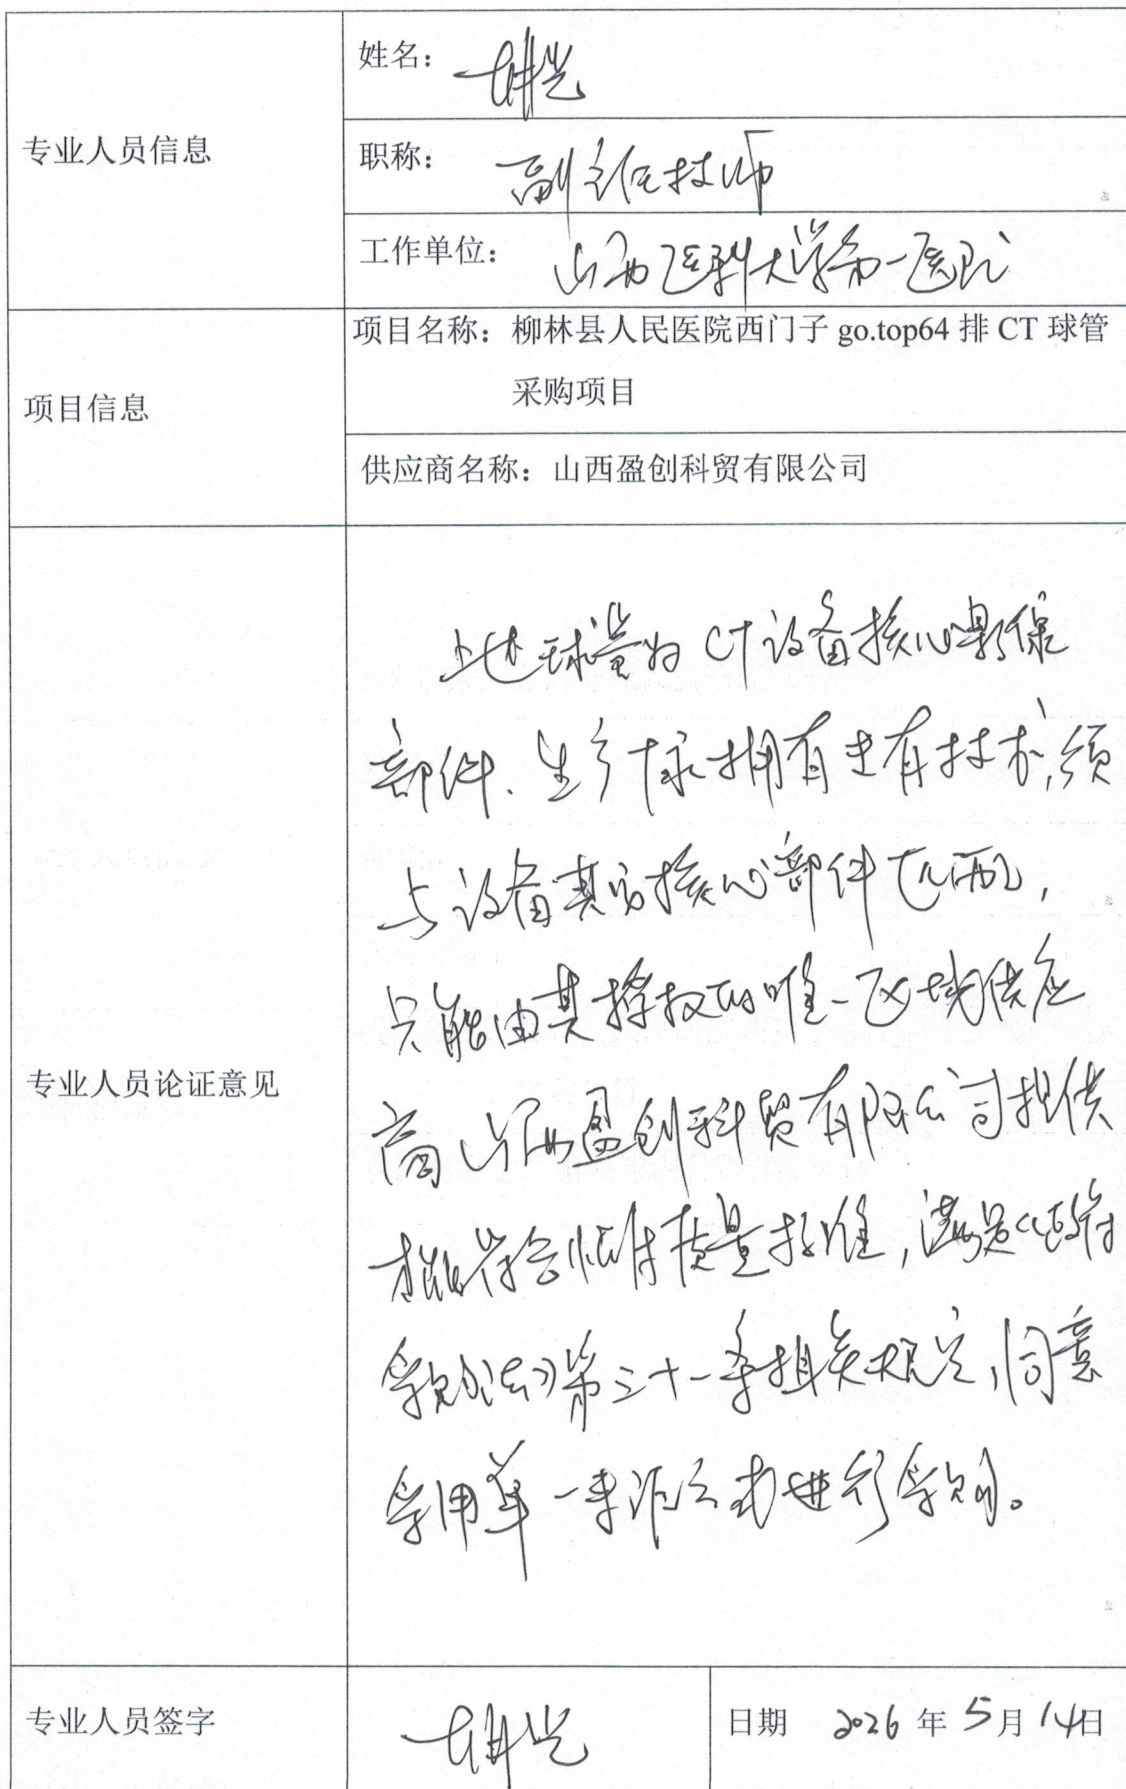 专业人员信息
姓名：
职称： 副主任技师
工作单位： 山西医科大学第一医院
项目信息
项目名称：柳林县人民医院西门子 go.top64 排 CT 球管
采购项目
供应商名称：山西盈创科贸有限公司
专业人员论证意见
上述球管为CT设备核心影像
部件、生产厂家拥有专有技术，须
与设备其它核心部件匹配，
只能由其授权的唯一区域供应
商山西盈创科贸有限公司提供
才能符合临床质量标准，满足《政府
采购法》第三十一条相关规定，同意
采用单一来源方式进行采购。
专业人员签字
日期 2026 年 5 月 14 日